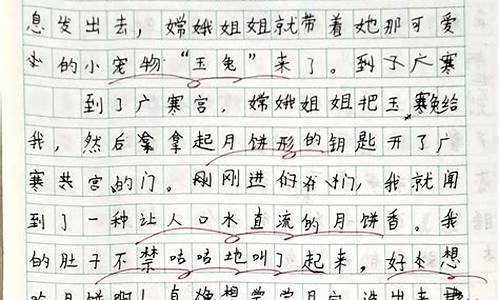 息发出去，嫦娥姐姐就带着她那可爱
的小宠物“玉兔”来了。到了广寒
到了广寒宫，嫦娥姐姐把玉兔给
我，然后拿起月饼形的钥匙开了广
寒宫的门。刚刚进门，我就闻
到了一种让人口水直流的月饼香。我
的肚子不禁咕咕地叫了起来，好想
吃月饼啊！真想